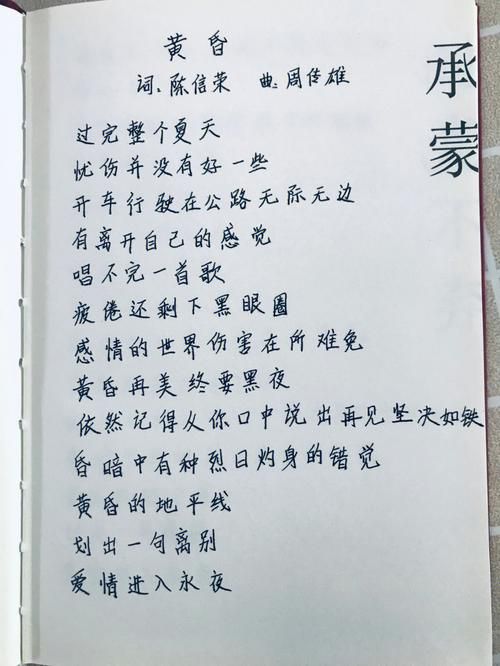 黄昏
词、陈信荣 曲:周传雄
承蒙
过完整个夏天
忧伤并没有好一些
开车行驶在公路无际无边
有离开自己的感觉
唱不完一首歌
疲倦还剩下黑眼圈
感情的世界伤害在所难免
黄昏再美终要黑夜
依然记得从你口中说出再见坚决如铁
昏暗中有种烈日灼身的错觉
黄昏的地平线
划出一句离别
爱情进入永夜